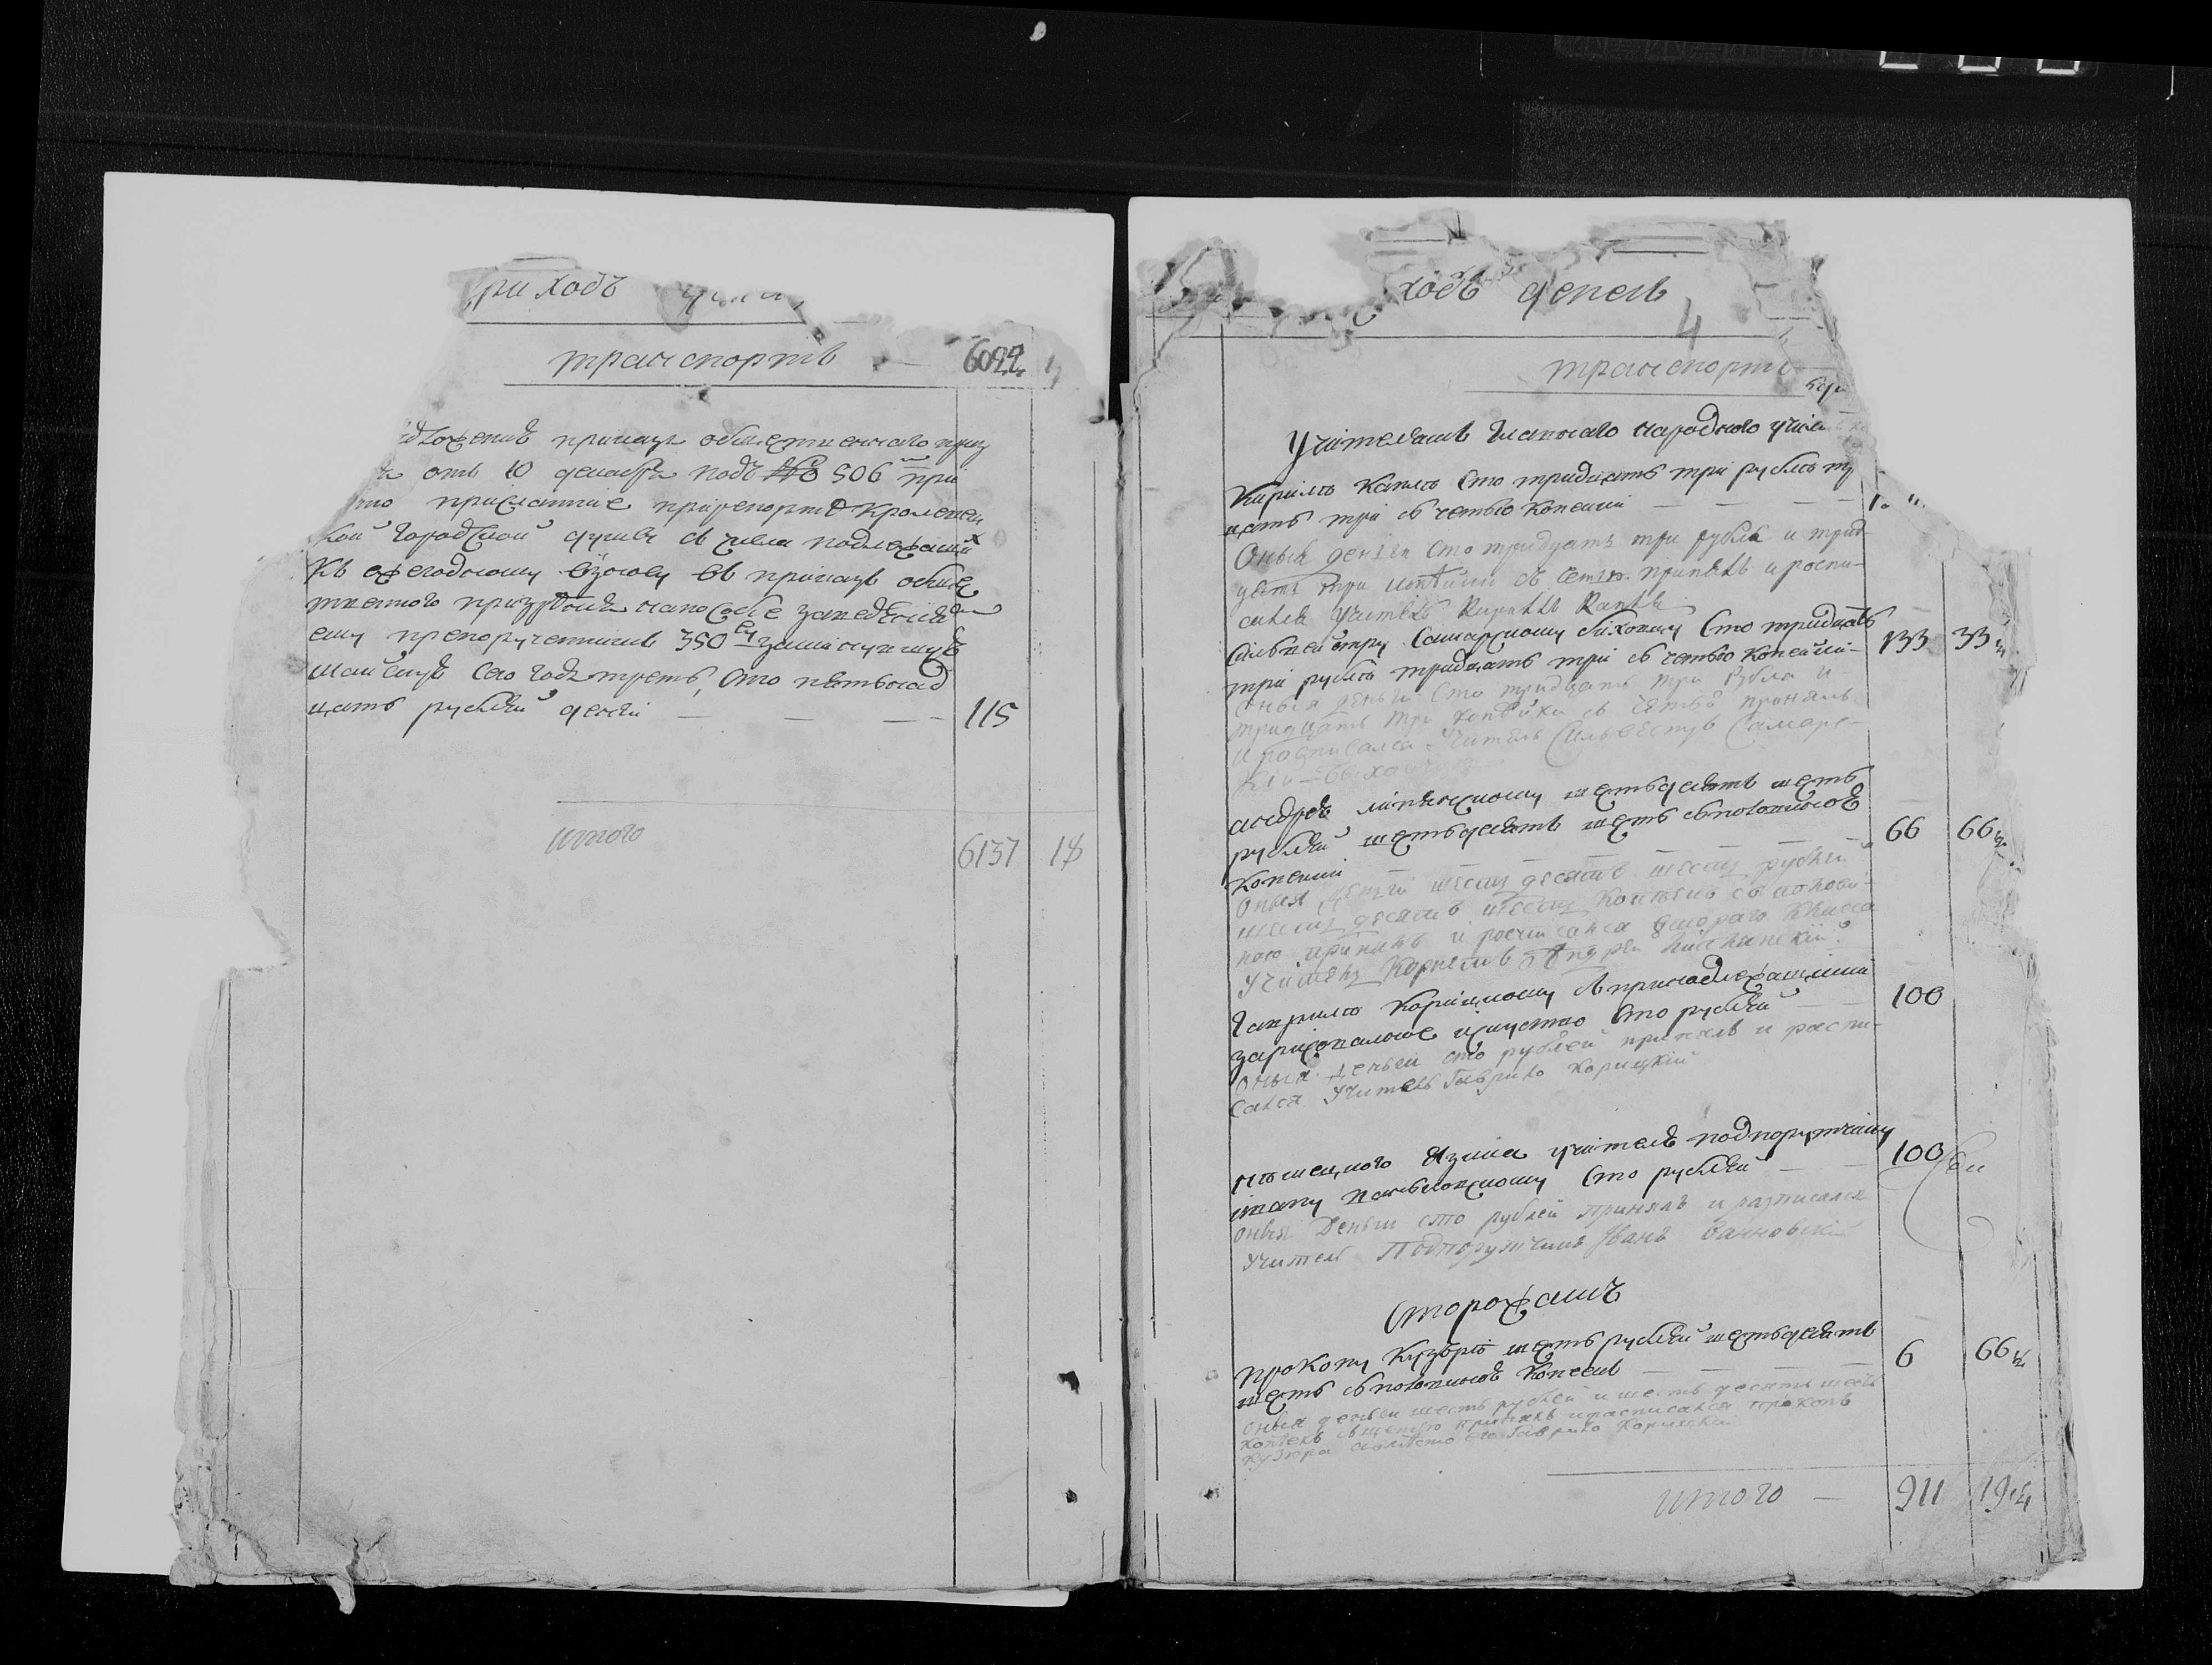 риходъ
транспортъ — 6022
приказа общественнаго приз
отъ 10 декабря подъ № 506 при
присланние прирепорте Кременч
кой городской думы съ числа подлежащихъ
къ ежегодному взносу въ приказъ обще
ственного призрения на пособие заведений
ему препорученнимъ 350 замінувшую
майскую сего года треть, сто пятьнад
цать рублей денги — — — 115
итого 6137 18
ходъ денегъ
4
транспортъ
Учителамъ главнаго народного учи
Кирилѣ Каплѣ Сто тридцать три рубля тр
цать три съ четью копейки — — —
Оныя денги сто тридцать три рубля и трид
цать три копѣйки съ четью принялъ и роспи-
сался учитель Кирилъ Капля
Сильвестру Самарскому быховцу Сто тридцать
три рубля тридцать три съ четью копейки - 133 33 ¼
оныя деньги сто тридцать три рубла и
тридцать три копѣйки съ четью принялъ
и росписался Учитель Сильвестръ Самарс-
кій-Быховецъ
андрею шестьдесятъ шесть
рублей шестьдесятъ шесть съполовиною
копеики — — — — — 66 66 ½
Оныя денги шесть десятъ шесть рублей
шесть десятъ шесть копѣекъ съ полови-
ною принялъ и росписался втораго класса
Учитель Корнетъ Андрей
Гаврилѣ Корицкому съпринадлежащими
зарисовалное искуство Сто рублей — — 100
оныя деньги сто рублей принялъ и распи-
сался Учитель Гаврило Корицкій
немецкого языка учителю подпорутчику
ивану Сто рублей — — 100
оныя Деньги сто рублей принялъ и разписался
Учитель Подпорутчикъ Іванъ
Сторожамъ
прокопу Кузюрѣ шесть рублей шестьдесятъ
шесть съполовиною копеекъ — — — — 6 66 ½
оныя деньги шесть рублей и шесть десятъ шесть
копѣекъ принялъ и росписался прокопъ
кузюра а вместо его Гаврило Корицкій
итого — 911 19 ¼